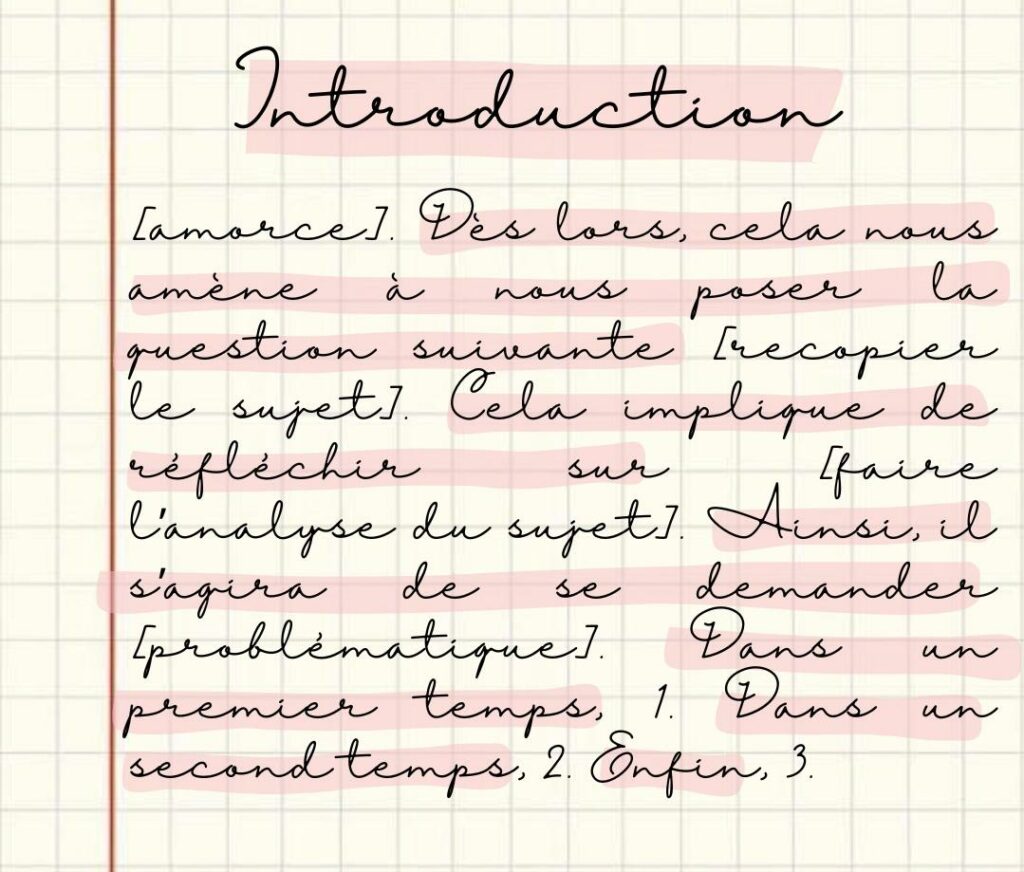 Introduction
[amorce]. Dès lors, cela nous
amène à nous poser la
question suivante [recopier
le sujet]. Cela implique de
réfléchir sur [faire
l'analyse du sujet]. Ainsi, il
s'agira de se demander
[problématique]. Dans un
premier temps, 1. Dans un
second temps, 2. Enfin, 3.